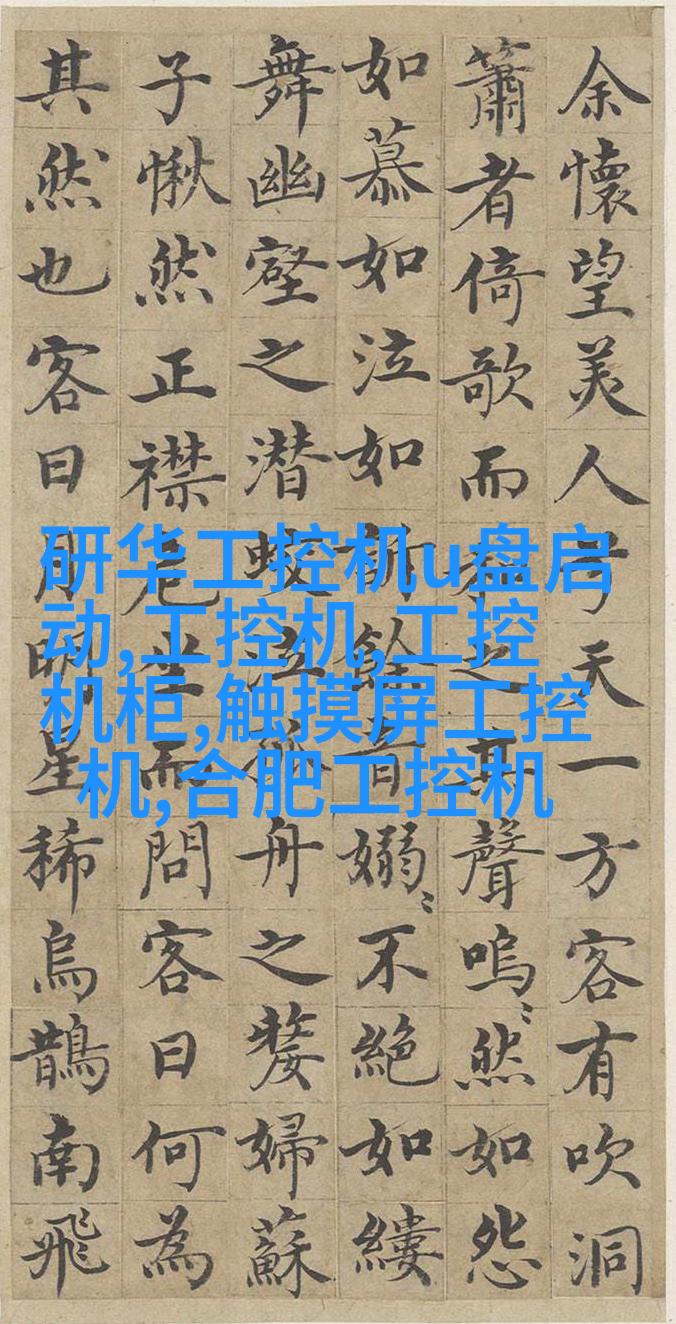 余懷望美人兮天一方客有吹洞
簫者倚歌而和之其聲嗚〻然如怨
如慕如泣如訴餘音嫋〻不絕如縷
舞幽壑之潛蛟泣孤舟之嫠婦蘇
子愀然正襟危坐而問客曰何為
其然也客曰月明星稀烏鵲南飛
研华工控机u盘启
动,工控机,工控
机柜,触摸屏工控
机,合肥工控机